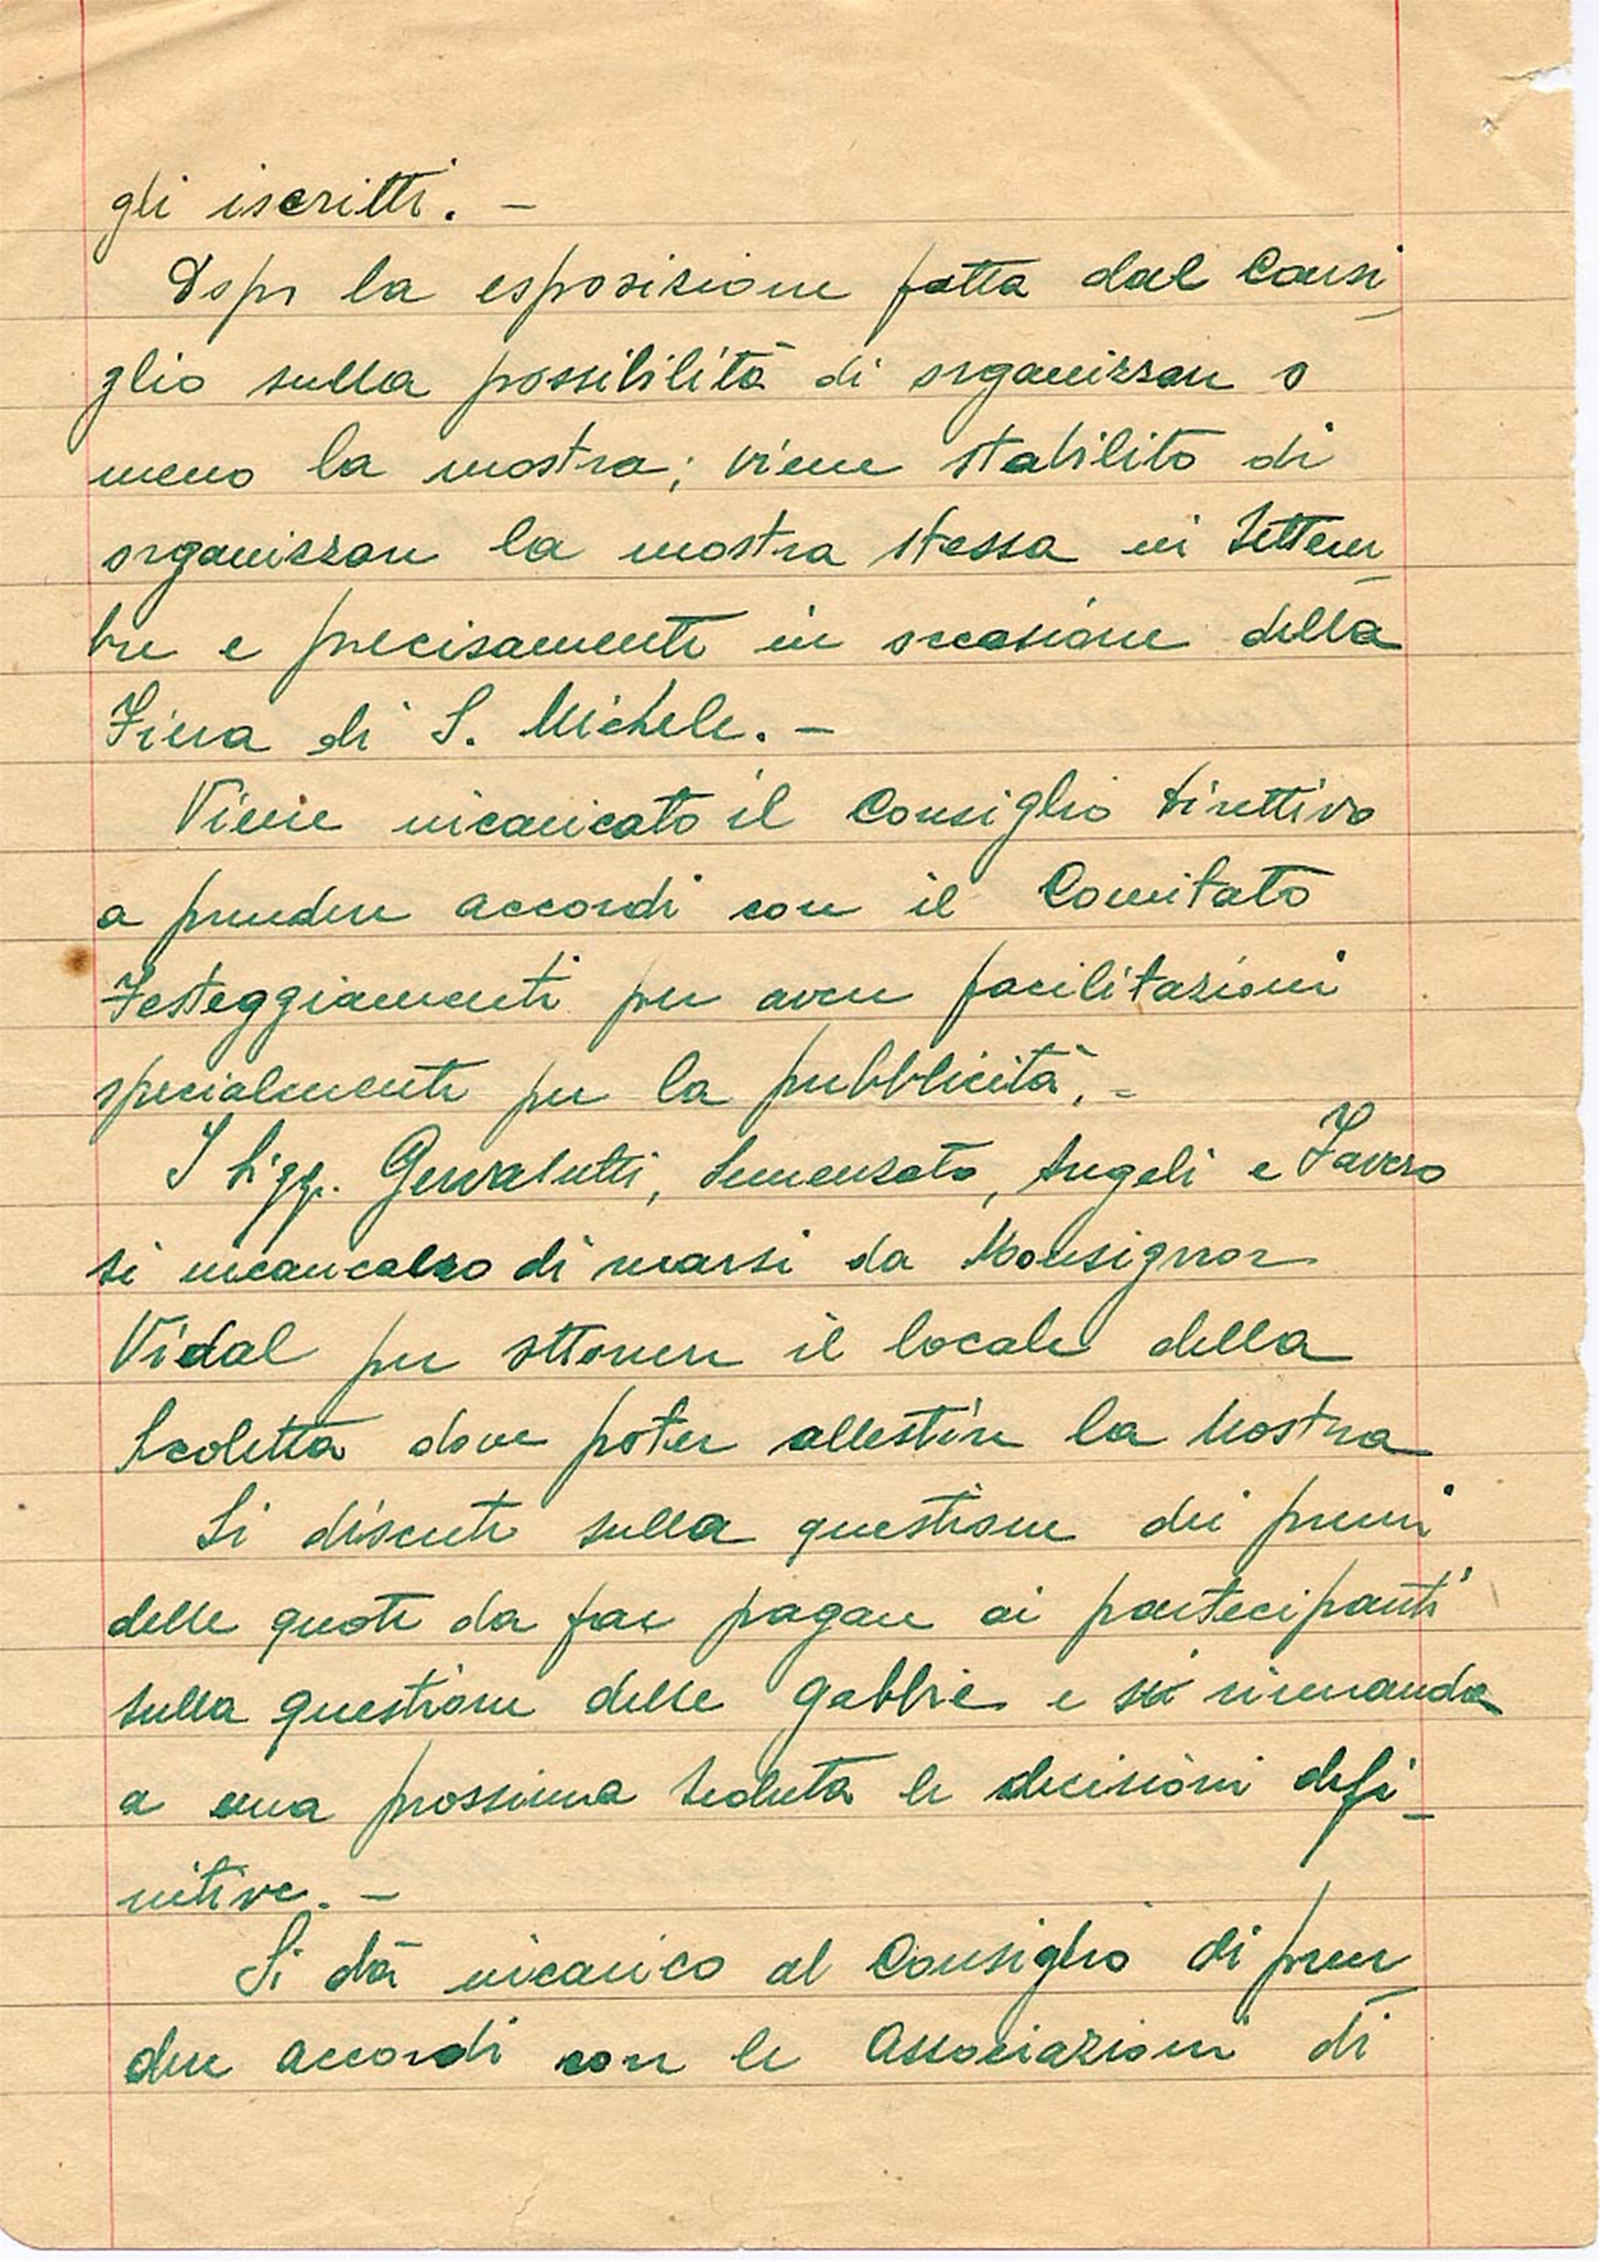 gli iscritti. -
Dopo la esposizione fatta dal Consi
glio sulla possibilità di organizzare o
meno la mostra; viene stabilito di
organizzare la mostra stessa in Settem
bre e precisamente in occasione della
Fiera di S. Michele. -
Viene incaricato il Consiglio direttivo
a prendere accordi con il Comitato
Festeggiamenti per avere facilitazioni
specialmente per la pubblicità. -
I Sigg. Gervasutti, Semenzato, Angeli e Favero
si di da Monsignor
Vidal per ottenere il locale della
Scoletta dove poter allestire la Mostra
Si discute sulla questione dei premi
delle quote da far pagare ai partecipanti
sulla questione delle gabbie e si rimanda
a una prossima seduta le decisioni defi-
nitive. -
Si dà incarico al Consiglio di pren
dere accordi con le Associazioni di